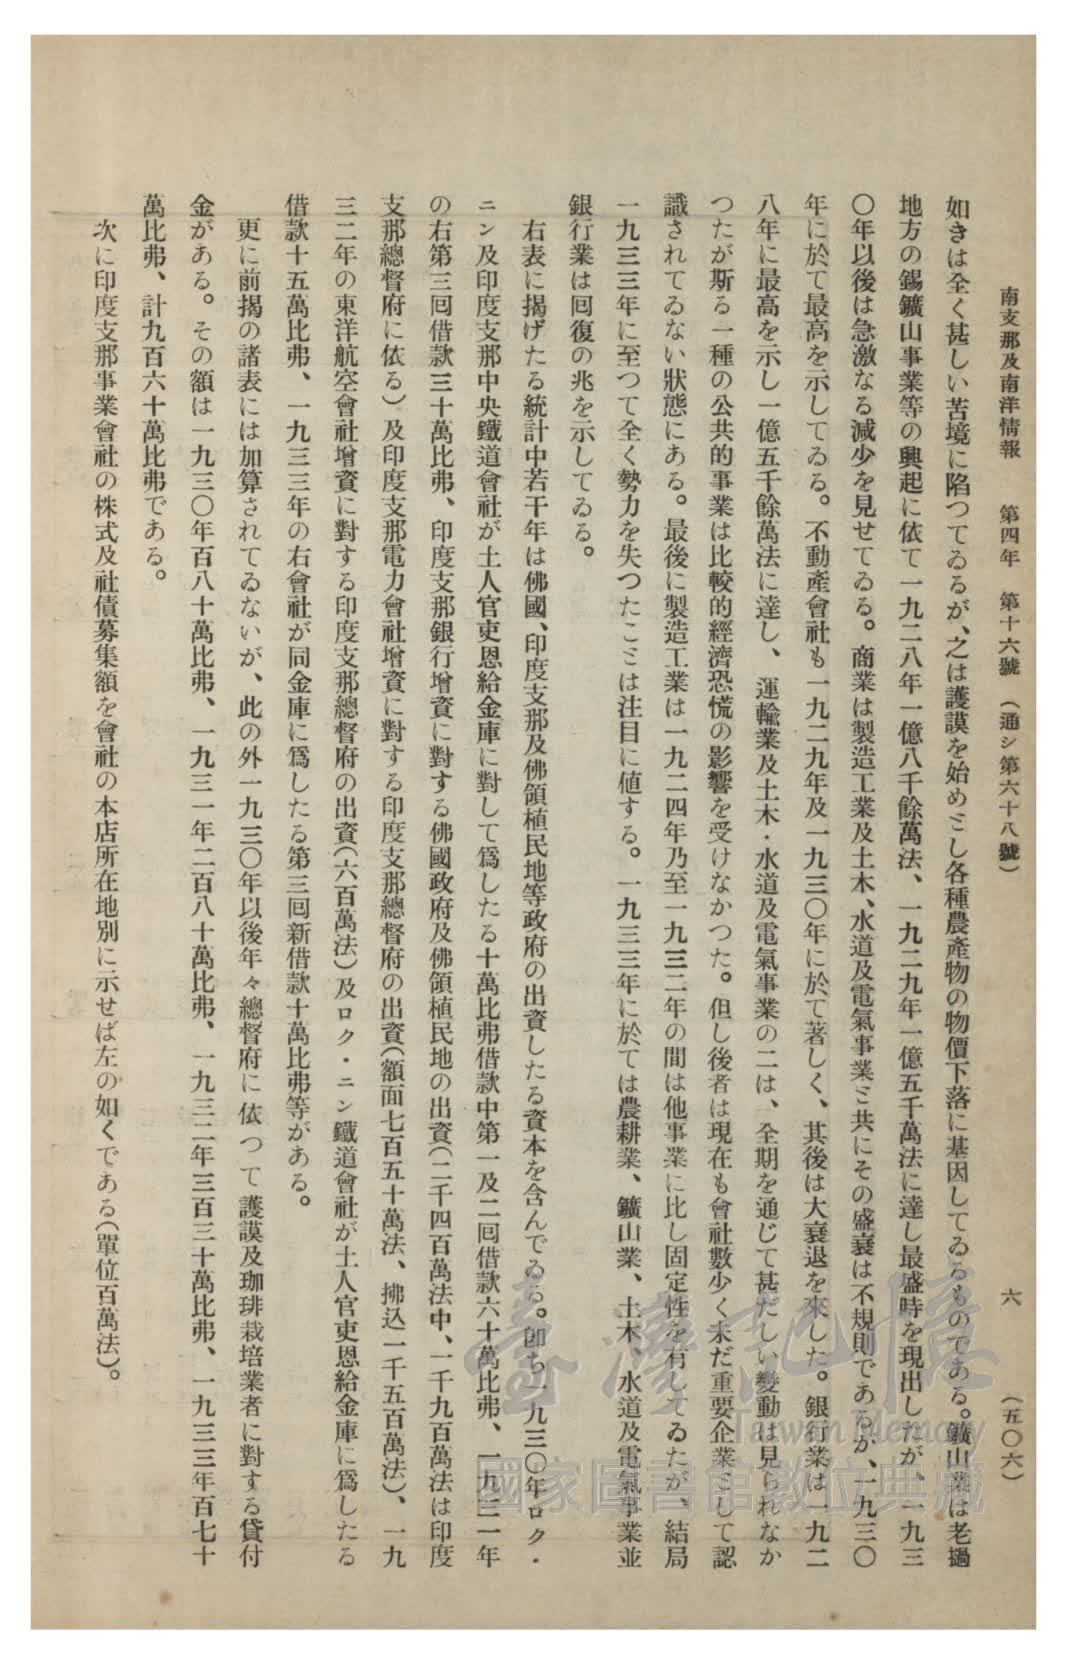 南支那及南洋情報　第四年　第十六號　（通シ第六十八號）　六　（五〇六）
如きは全く甚しい苦境に陷つてゐるが、之は護謨を始めとし各種農產物の物價下落に基因してゐるものである。鑛山業は老撾
地方の錫鑛山事業等の興起に依て一九二八年一億八千餘萬法、一九二九年一億五千萬法に達し最盛時を現出したが、一九三
〇年以後は急激なる減少を見せてゐる。商業は製造工業及土木、水道及電氣事業と共にその盛衰は不規則であるが、一九三〇
年に於て最高を示してゐる。不動產會社も一九二九年及一九三〇年に於て著しく、其後は大衰退を來した。銀行業は一九二
八年に最高を示し一億五千餘萬法に達し、運輸業及土木・水道及電氣事業の二は、全期を通じて甚だしい變動は見られなか
つたが斯る一種の公共的事業は比較的經濟恐慌の影響を受けなかつた。但し後者は現在も會社數少く未だ重要企業として認
識されてゐない狀態にある。最後に製造工業は一九二四年乃至一九三二年の間は他事業に比し固定性を有してゐたが、結局
一九三三年に至つて全く勢力を失つたことは注目に値する。一九三三年に於ては農耕業、鑛山業、土木、水道及電氣事業並
銀行業は囘復の兆を示してゐる。
右表に揭げたる統計中若干年は佛國、印度支那及佛領植民地等政府の出資したる資本を含んでゐる。卽ち一九三〇年ロク・
ニン及印度支那中央鐵道會社が土人官吏恩給金庫に對して爲したる十萬比弗借款中第一及二囘借款六十萬比弗、一九三一年
の右第三囘借款三十萬比弗、印度支那銀行增資に對する佛國政府及佛領植民地の出資（二千四百萬法中、一千九百萬法は印度
支那總督府に依る）及印度支那電力會社增資に對する印度支那總督府の出資（額面七百五十萬法、拂込一千五百萬法）、一九
三二年の東洋航空會社增資に對する印度支那總督府の出資（六百萬法）及ロク・ニン鐵道會社が土人官吏恩給金庫に爲したる
借款十五萬比弗、一九三三年の右會社が同金庫に爲したる第三囘新借款十萬比弗等がある。
更に前揭の諸表には加算されてゐないが、此の外一九三〇年以後年々總督府に依つて護謨及珈琲栽培業者に對する貸付
金がある。その額は一九三〇年百八十萬比弗、一九三一年二百八十萬比弗、一九三二年三百三十萬比弗、一九三三年百七十
萬比弗、計九百六十萬比弗である。
次に印度支那事業會社の株式及社債募集額を會社の本店所在地別に示せば左の如くである（單位百萬法）。
臺灣記憶
Taiwan Memory
國家圖書館數位典藏